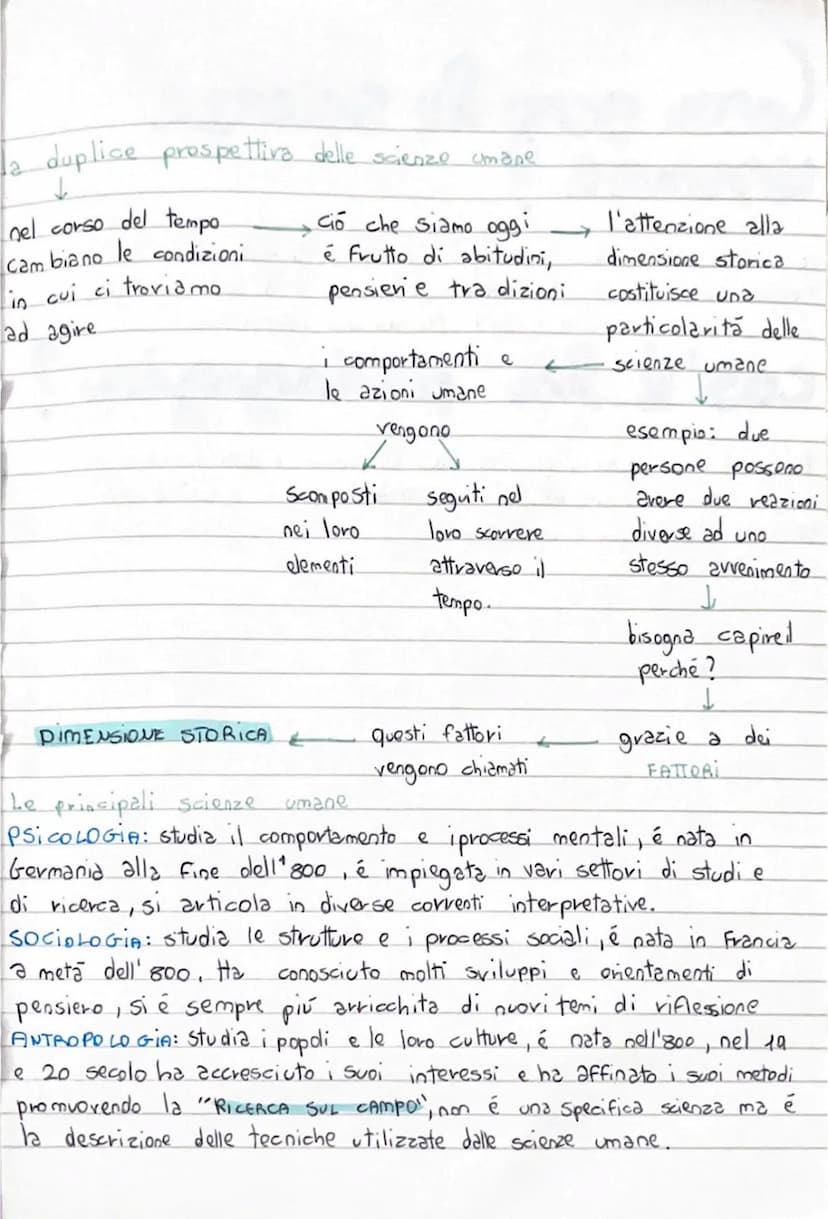 la duplice prospettiva delle scienze umane
nel corso del tempo
cambiano le condizioni
in cui ci troviamo
ad agire
ció che siamo oggi
é frutto di abitudini,
pensieri e tradizioni
l'attenzione alla
dimensione storica
costituisce una
particolaritá delle
scienze umane
i comportamenti e
le azioni umane
vengono
scomposti
nei loro
elementi
seguiti nel
loro scorrere
attraverso il
tempo.
esempio: due
persone possono
avere due reazioni
diverse ad uno
stesso avvenimento
bisogna capire il
perché?
grazie a dei
FATTORI
questi fattori
vengono chiamati
DIMENSIONE STORICA
Le principali scienze umane
PSICOLOGIA: studia il comportamento e i processi mentali, é nata in
Germania alla fine dell'800, é impiegata in vari settori di studi e
di ricerca, si articola in diverse correnti interpretative.
SOCIOLOGIA: studia le strutture e i processi sociali, é nata in Francia
a metá dell'800. Ha conosciuto molti sviluppi e orientamenti di
pensiero, si é sempre piú arricchita di nuovi temi di riflessione
ANTROPOLOGIA: studia i popoli e le loro culture, é nata nell'800, nel 19
e 20 secolo ha accresciuto i suoi interessi e ha affinato i suoi metodi
promuovendo la "RICERCA SUL CAMPO", non é una specifica scienza ma é
la descrizione delle tecniche utilizzate dalle scienze umane.